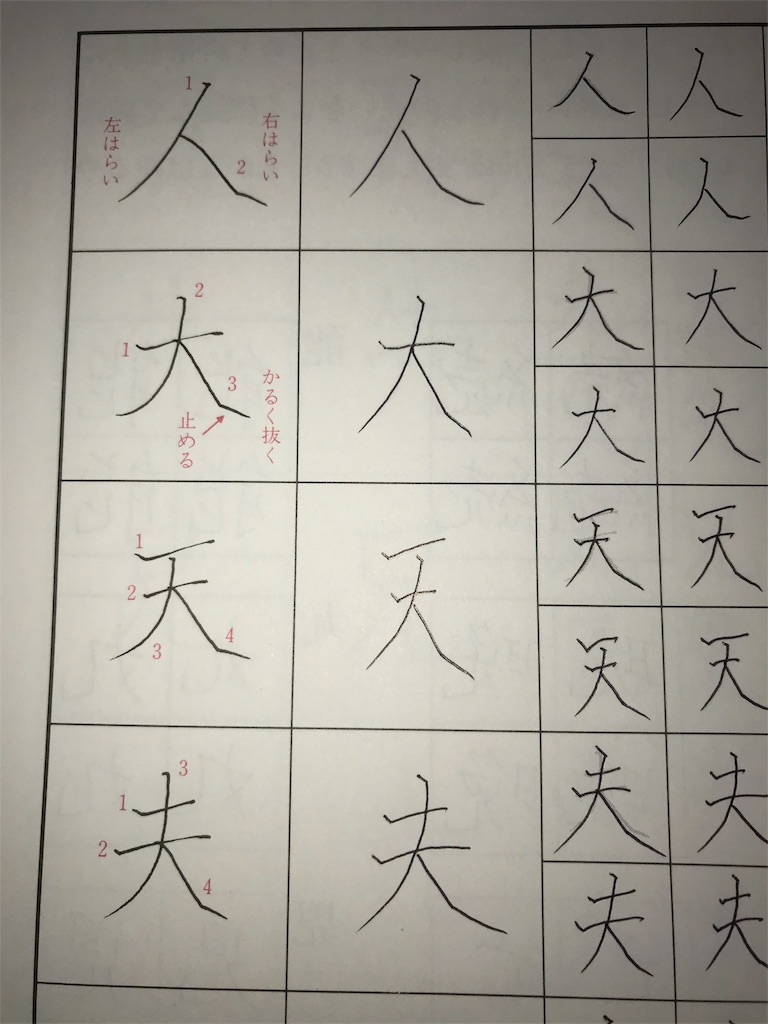 人 人 人 人
人 人
1
2
左はらい
右はらい
大 大 大 大
大 大
1
2
3
止める
かるく抜く
天 天 天 天
天 天
1
2
3
4
夫 夫 夫 夫
夫 夫
1
2
3
4